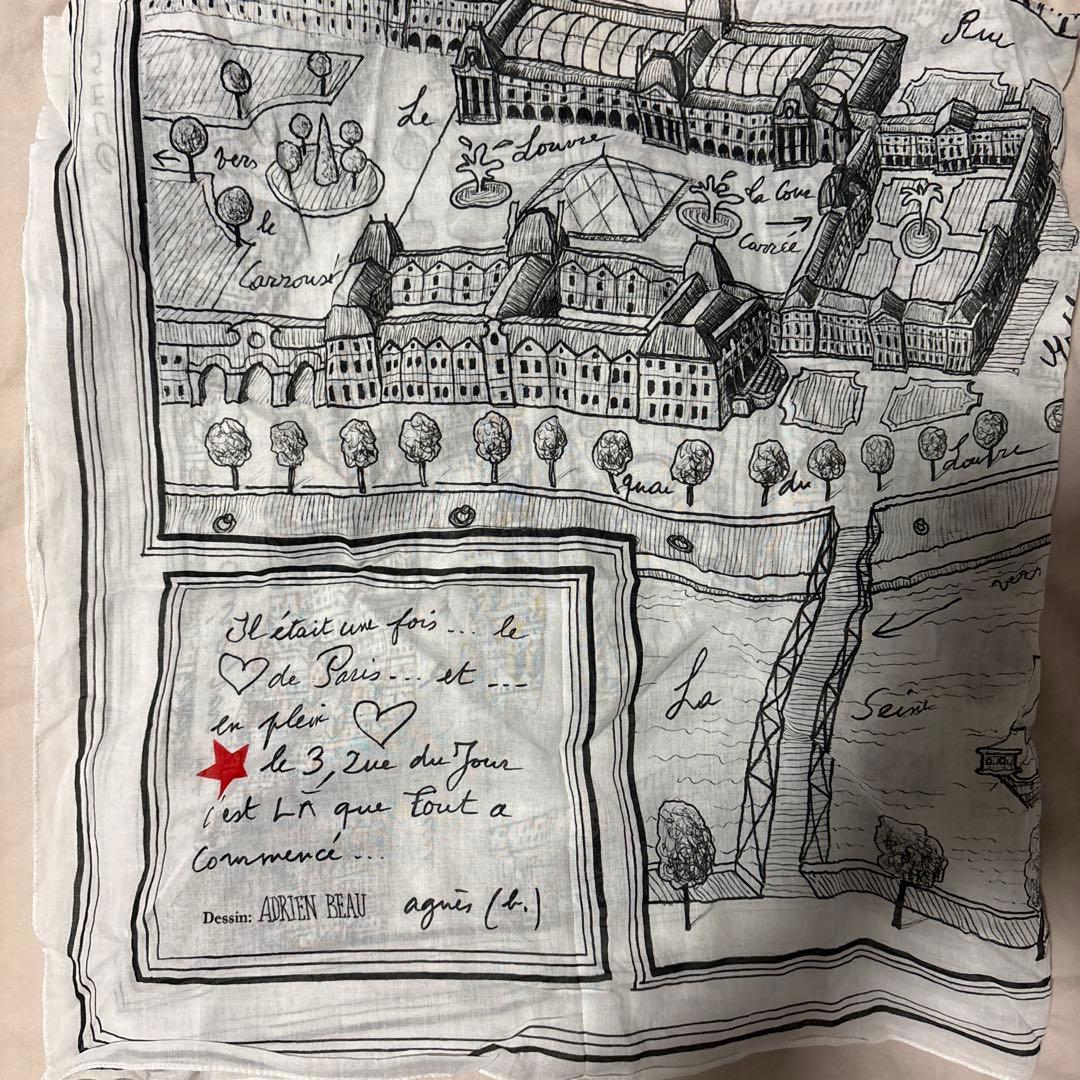 Rue
Le
Louvre
vers
le
Carrousel
la Cour
Carrée
quai du Louvre
vers
La Seine
Il était une fois... le
♡ de Paris.... et ---
en plein ♡
★ le 3, rue du Jour
c'est LÀ que tout a
commencé...
Dessin: ADRIEN BEAU agnès (b.)